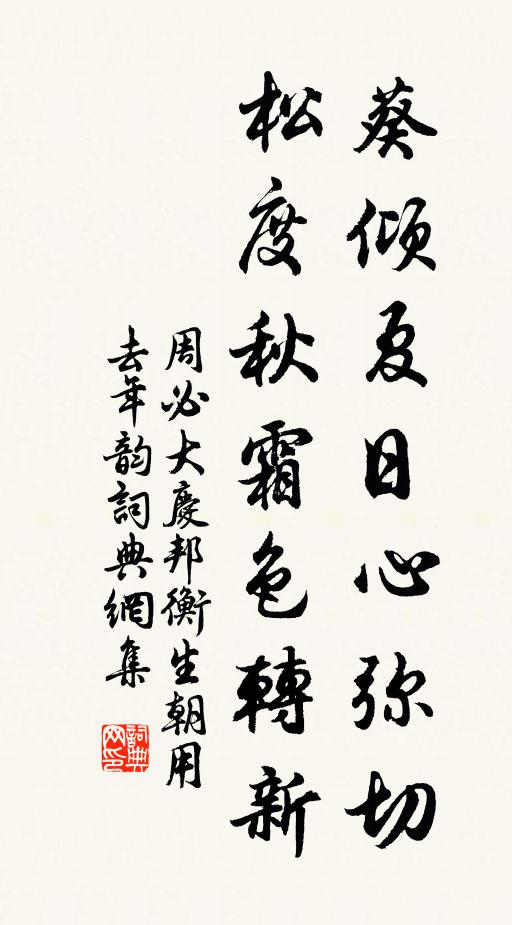 葵傾夏日心弥切
松度秋霜色轉新
周必大慶邦衡生朝用
去年韵詞典網集
詞典
网印